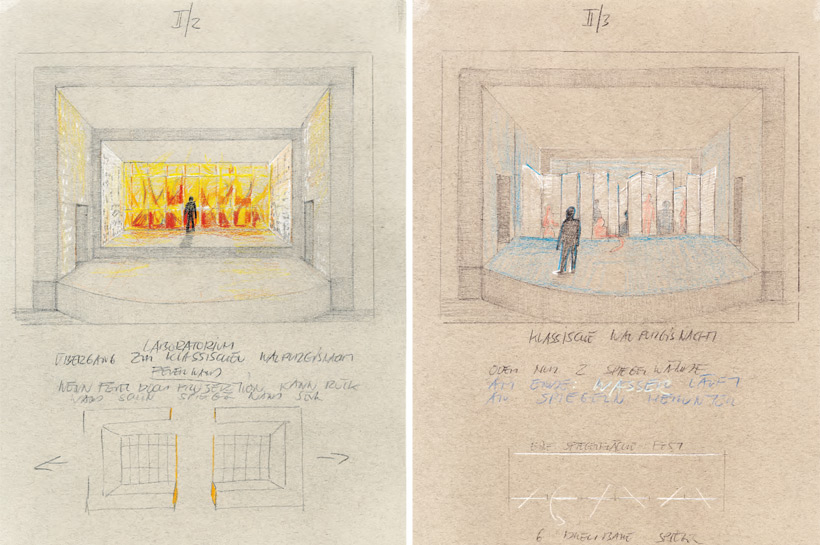 II/2
LABORATORIUM
ÜBERGANG ZUR KLASSISCHEN WALPURGISNACHT
FEUERWAND
WENN FEUER DURCH PROJEKTION, KANN RÜCK
WAND SCHON SPIEGELWAND SEIN
II/3
KLASSISCHE WALPURGISNACHT
ODER NUR 2 SPIEGELWÄNDE
AM ENDE: WASSER LÄUFT
AN SPIEGELN HERUNTER
SPIEGELFLÄCHE FEST
6 DREHBARE SPIEGEL